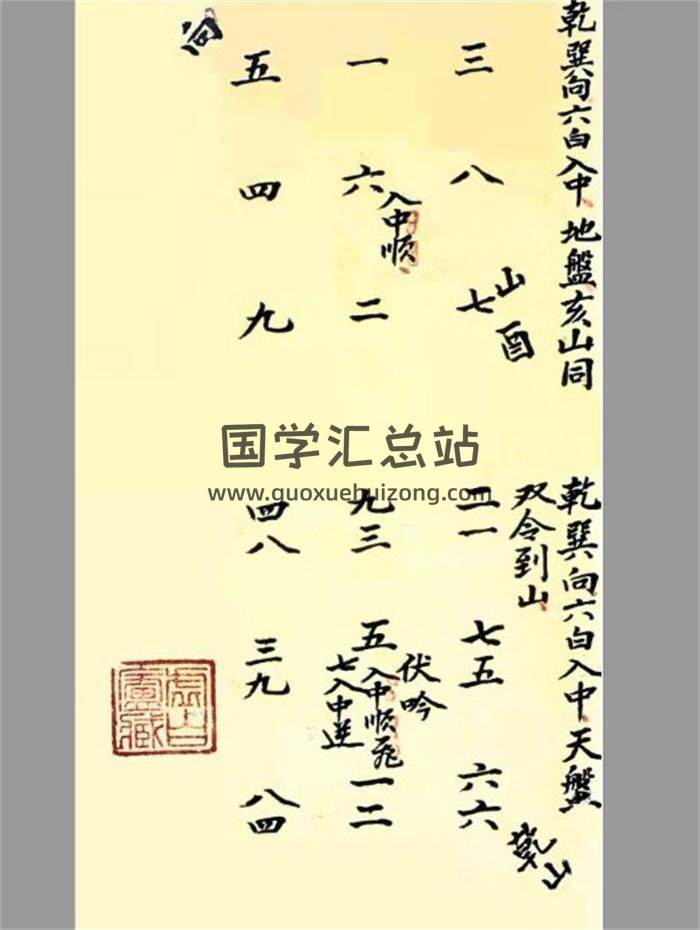 乾巽向六白入中 地盤亥山同
三 八 七
山酉
一 六 二
入中顺
五 四 九
向
国学汇总站
www.guoxuehuizong.com
乾巽向六白入中天盤
双令到山
二一 七五 六六
伏吟
九三 五 一二
入中順飛
七入中逆
四八 三九 八四
虛白廬藏